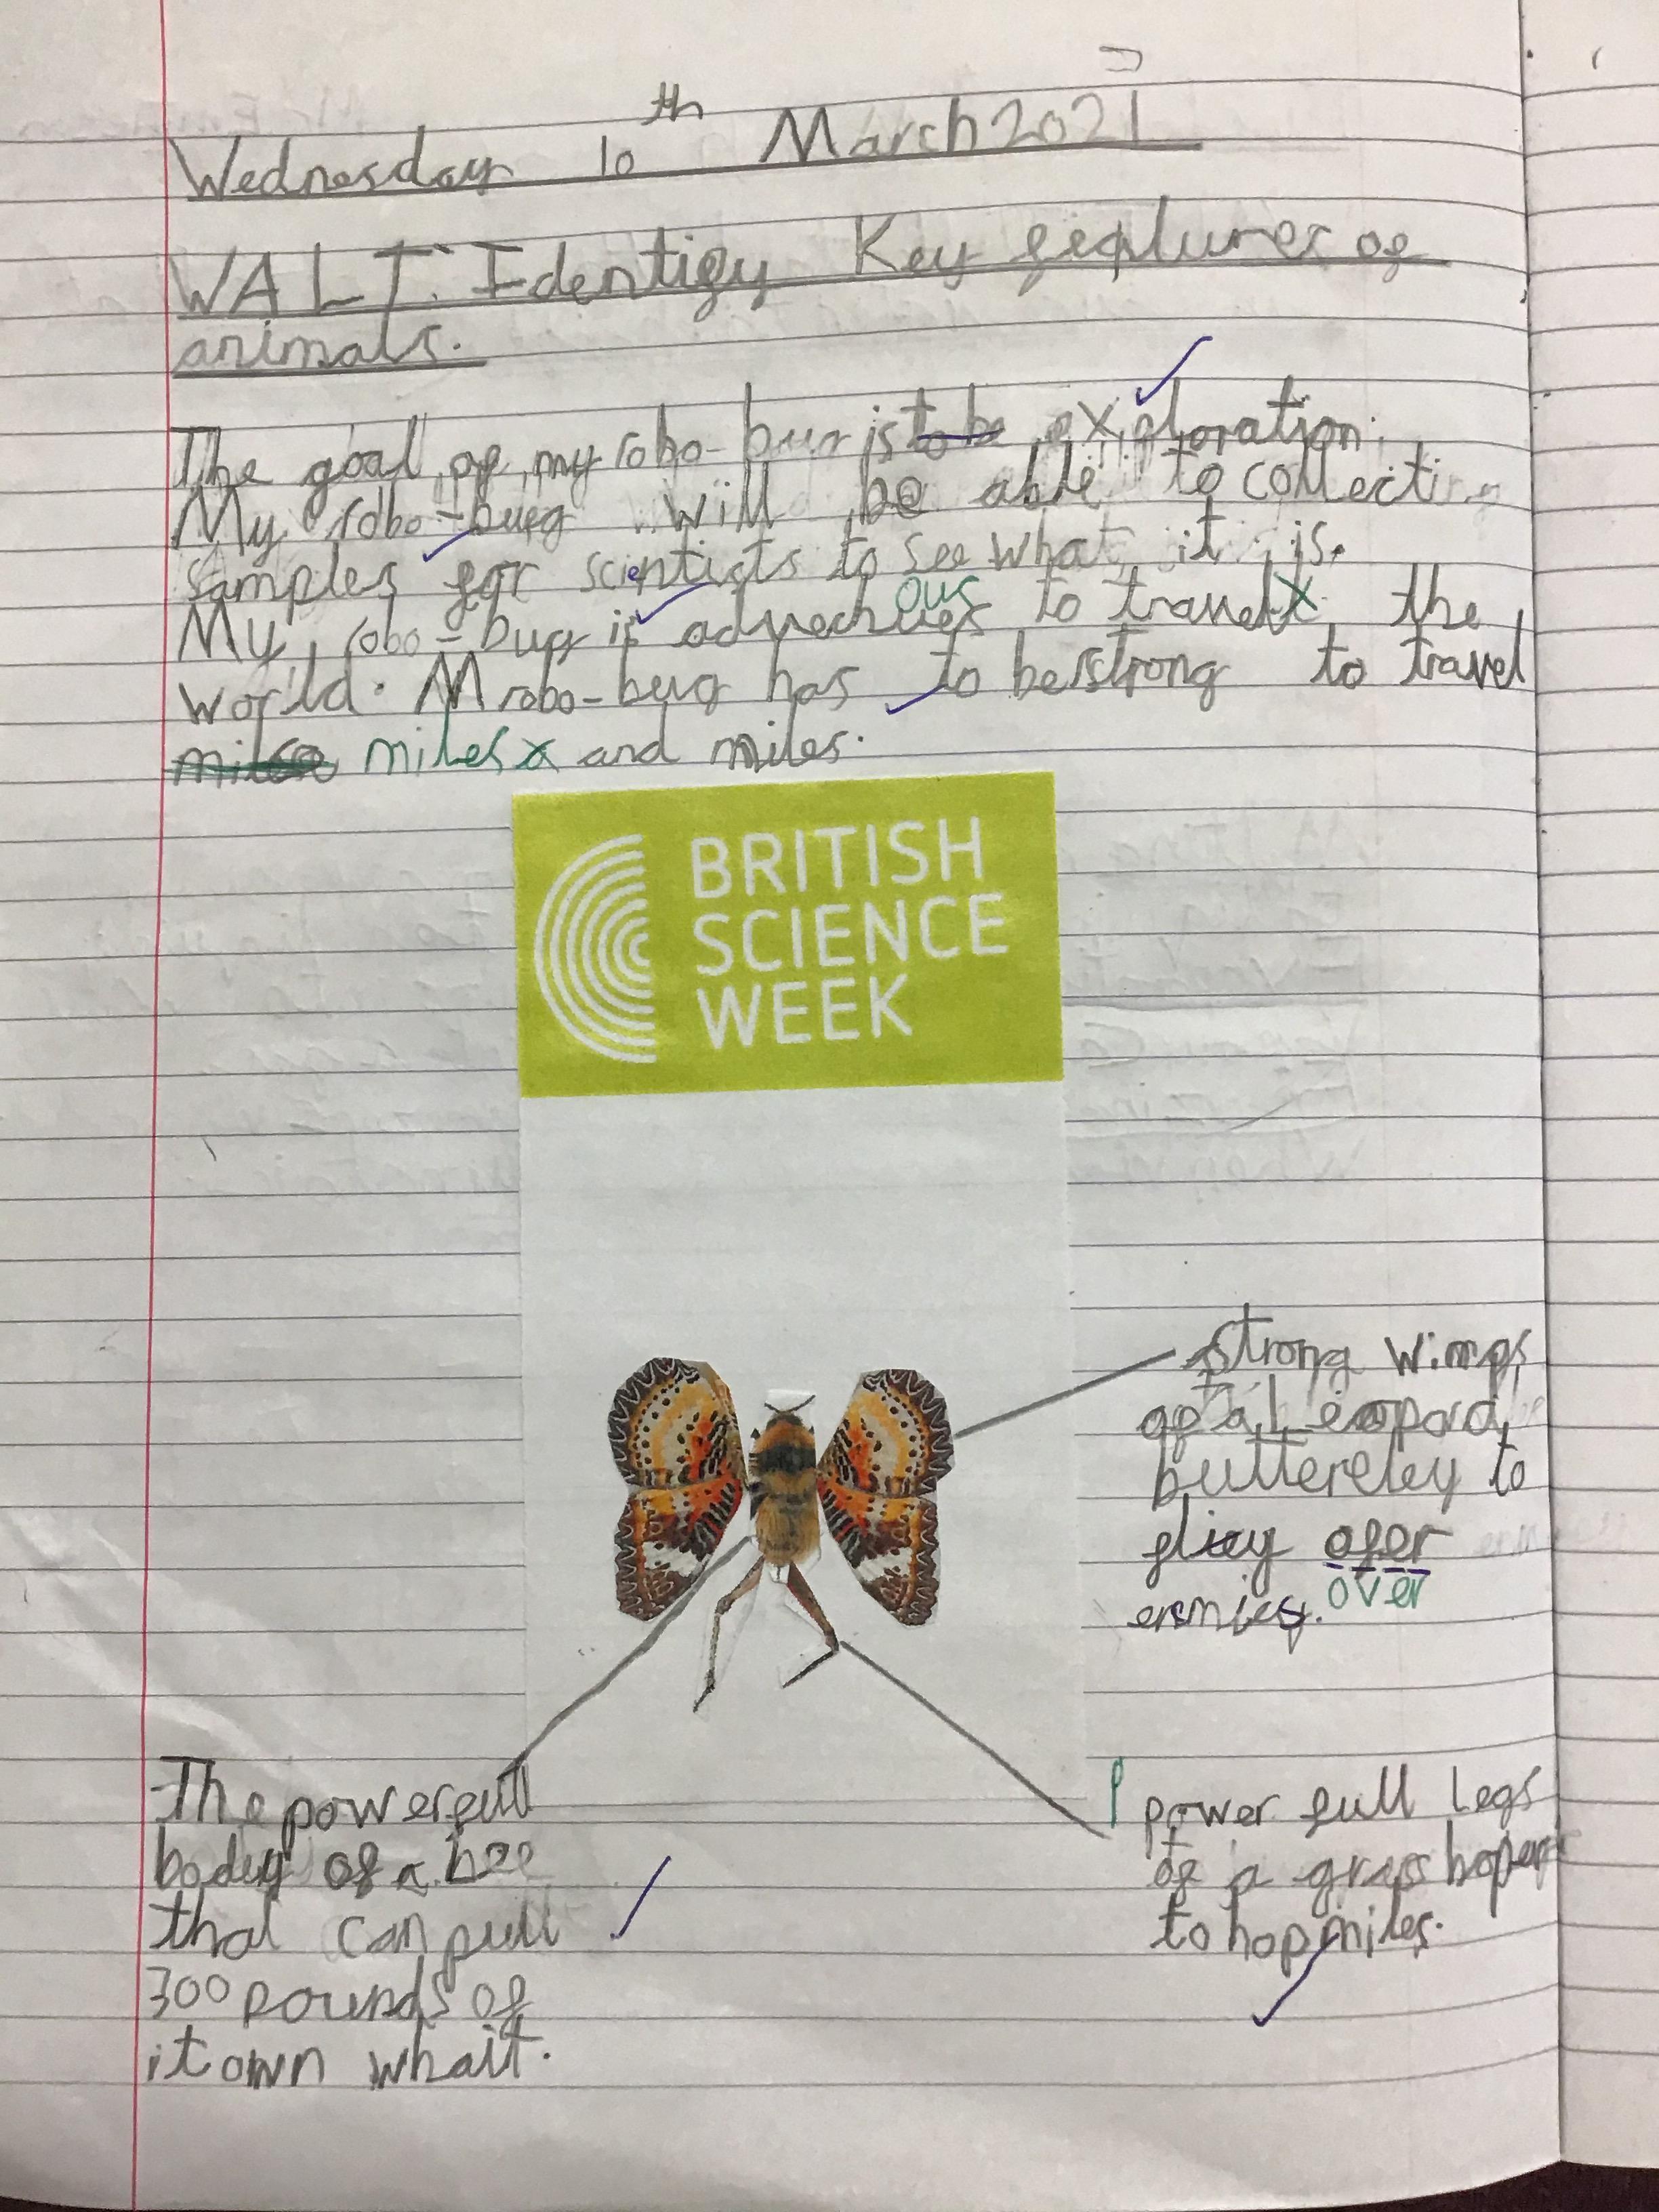 Wednesday 10th March 2021
WALT: Identify Key features of
animals.
The goal of my robo-bug is to be exploration.
My robo-bug will be able to collecting
samples for scientists to see what it is.
My robo-bug is ous to travel the
world. M robo-bug has to be strong to travel
miles and miles.
BRITISH
SCIENCE
WEEK
strong wings
of a Leopard
butterfley to
fley ofer
over
enmies.
The powerfull
body of a bee
that can pull
300 pounds of
it own whait.
P power full legs
of a grasshoper
to hop miles.